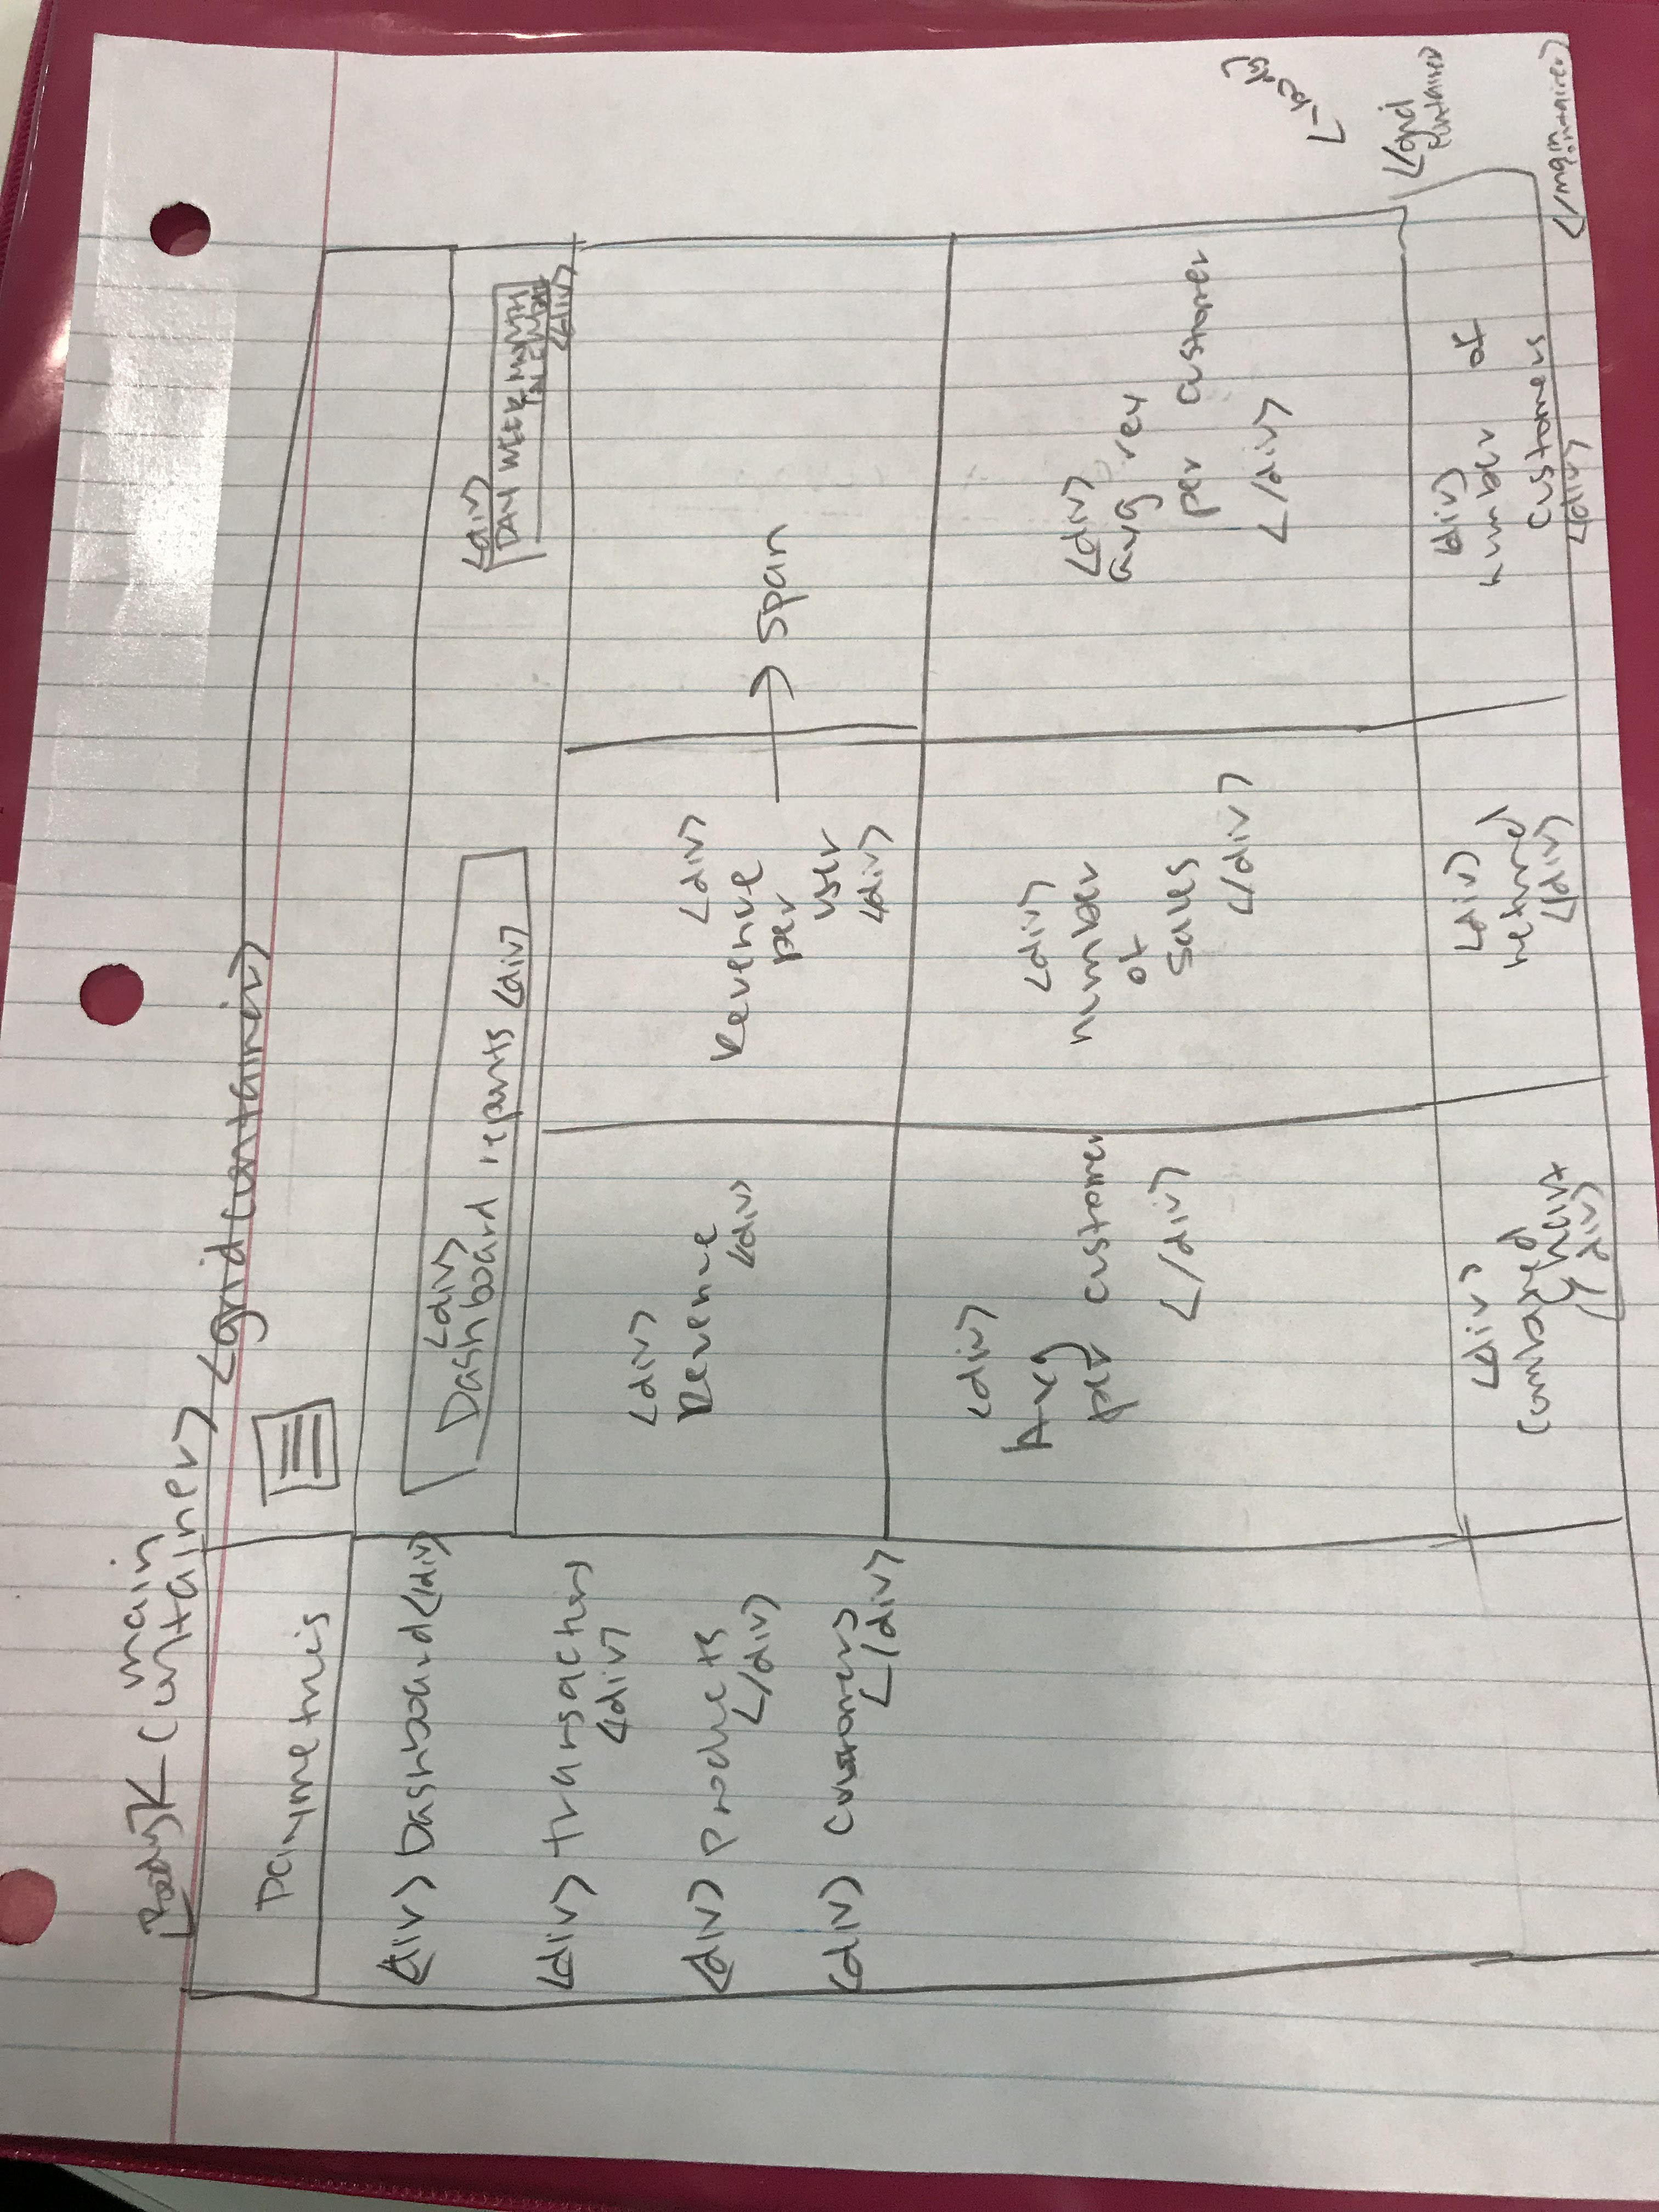 <Body> <main
container>
<grid container>
Paymetrics
<div> Dashboard </div>
<div> transactions
<div>
<div> products
</div>
<div> customers
</div>
<div>
Dashboard reports <div>
<div>
DAY WEEK MONTH
<div>
<div>
Revenue
<div>
<div>
Revenue
per
user
<div>
→ span
<div>
Avg
per customer
</div>
<div>
number
of
sales
</div>
<div>
avg rev
per customer
</div>
<div>
<div>
<div>
<div>
number of
customers
<div>
<grid
container>
</main
container>